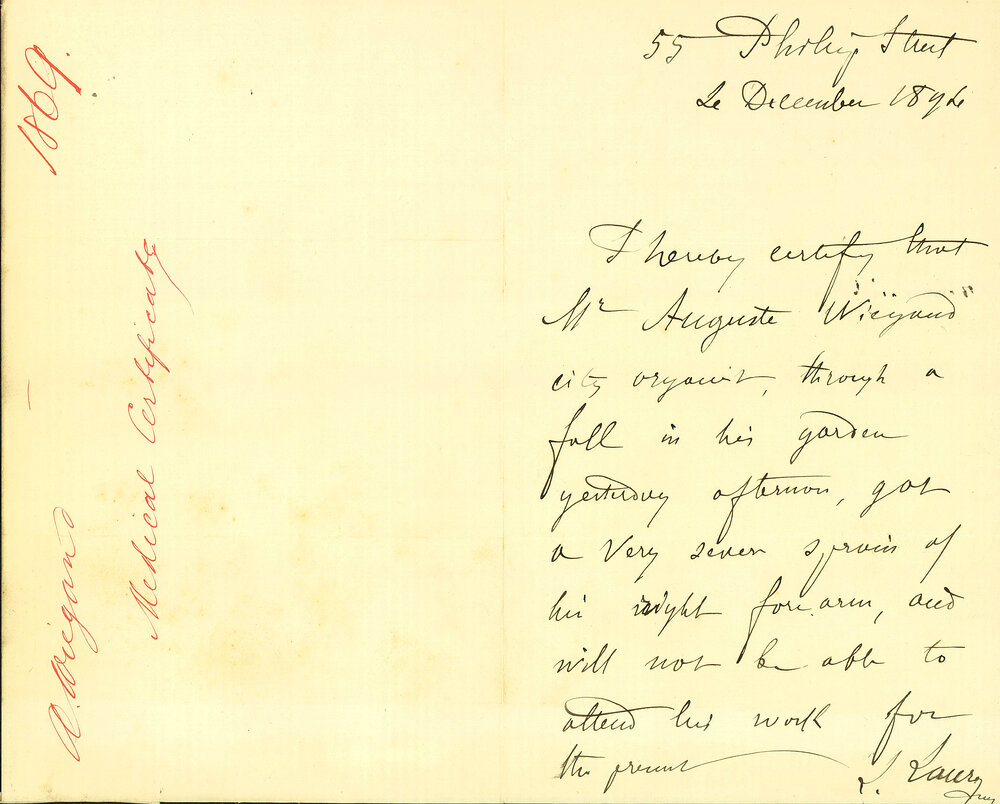 1869.
A. Wiegand
Medical Certificate
55 Philip Street
2e December 1894
I hereby certify that
Mr Auguste Wiegand
city organist, through a
fall in his garden
yesterday afternoon, got
a very sever sprain of
his right forearm, and
will not be able to
attend his work for
the present
L.